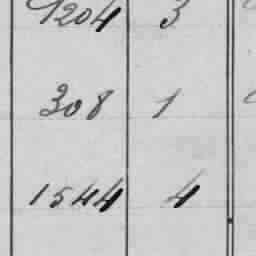 1204 3
308 1
1544 4